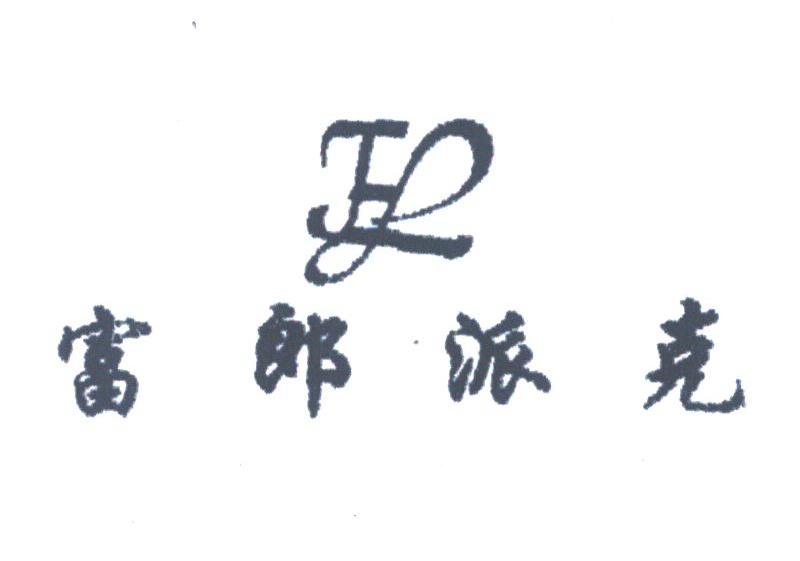 FL
富郎派克